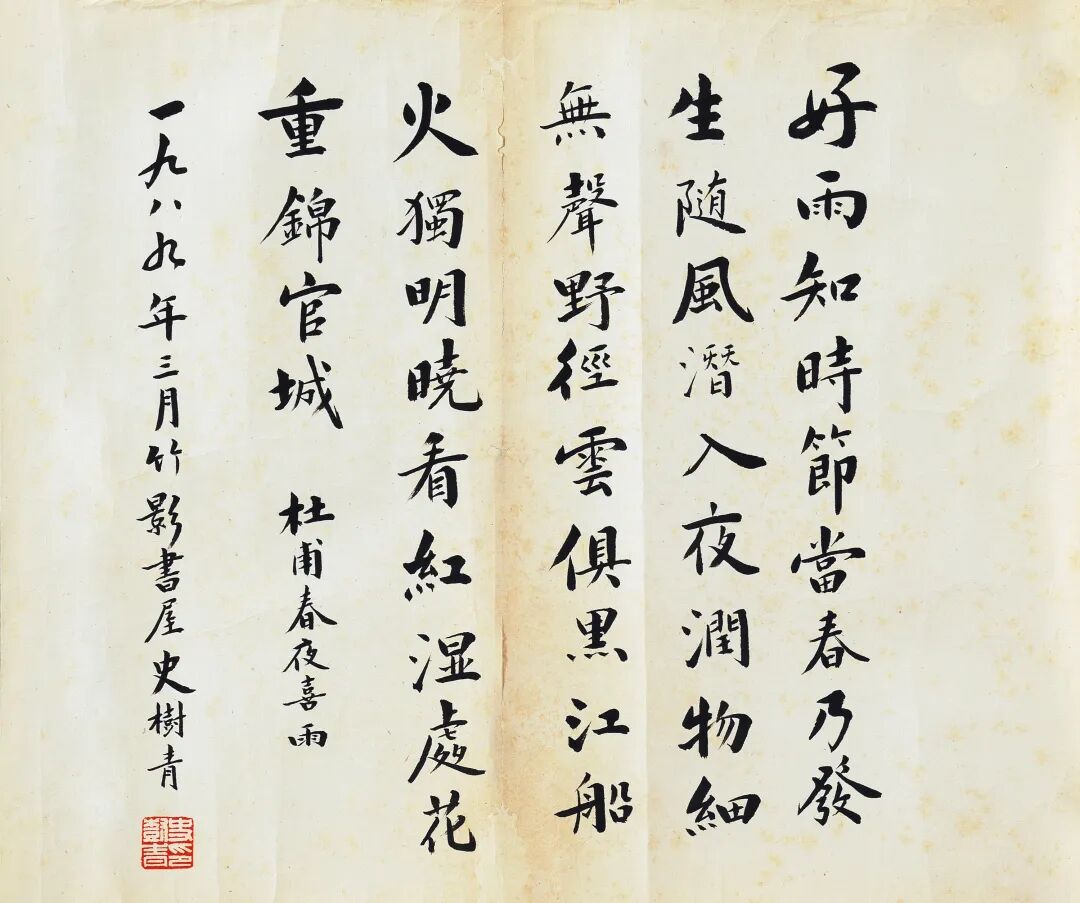 好雨知時節當春乃發
生随風潛入夜潤物細
無聲野徑雲俱黒江船
火獨明曉看紅湿處花
重錦官城 杜甫春夜喜雨
一九八九年三月竹影書屋史樹青
史樹青印